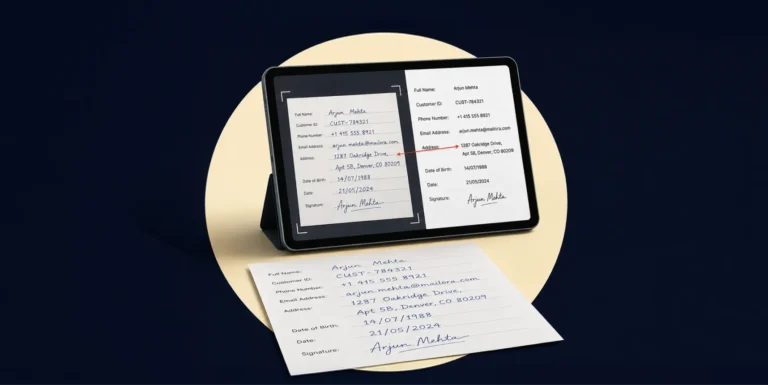 Full Name: Arjun Mehta
Customer ID: CUST-784321
Phone Number: +1 415 555 8921
Email Address: arjun.mehta@mailora.com
Address: 1287 Oakridge Drive,
Apt 5B, Denver, CO 80209
Date of Birth: 14/07/1988
Date: 21/05/2024
Signature: Arjun Mehta
Full Name: Arjun Mehta
Customer ID: CUST-784321
Phone Number: +1 415 555 8921
Email Address: arjun.mehta@mailora.com
Address: 1287 Oakridge Drive,
Apt 5B, Denver, CO 80209
Date of Birth: 14/07/1988
Date: 21/05/2024
Signature: Arjun Mehta
Full Name: Arjun Mehta
Customer ID: CUST-784321
Phone Number: +1 415 555 8921
Email Address: arjun.mehta@mailora.com
Address: 1287 Oakridge Drive,
Apt 5B, Denver, CO 80209
Date of Birth: 14/07/1988
Date: 21/05/2024
Signature: Arjun Mehta